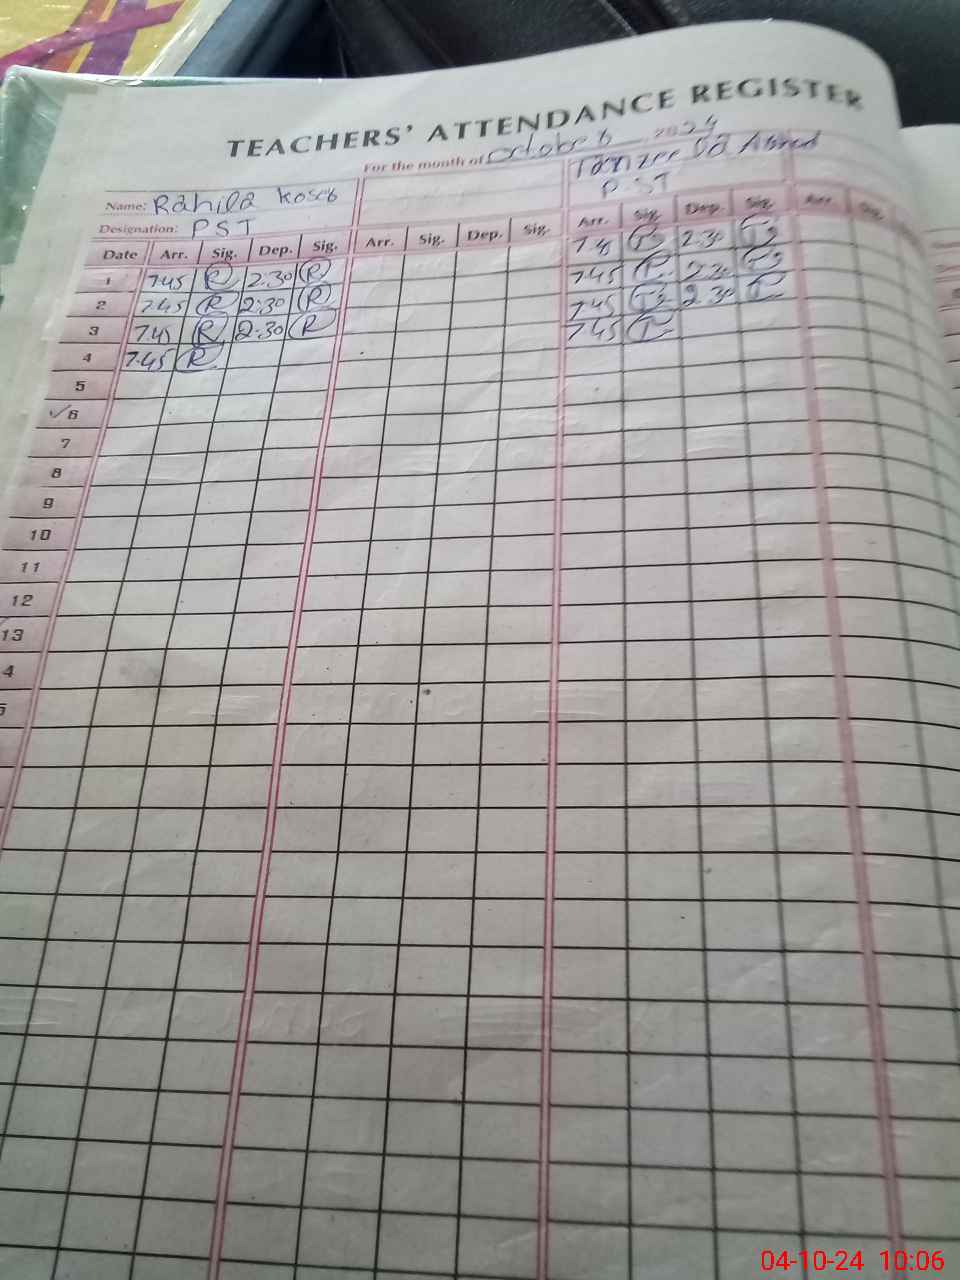 TEACHERS' ATTENDANCE REGISTER
For the month of October 2024
Name: Rahila Kosar
Designation: PST
PST
Date Arr. Sig. Dep. Sig. Arr. Sig. Dep. Sig. Arr. Sig. Dep. Sig. Arr. Sig.
1 7.45 R 2.30 R 7.45
2 7.45 R 2:30 R 7.45 2.30
3 7.45 R 2:30 R 7.45
4 7.45 R
5
✓6
7
8
9
10
11
12
13
4
5
04-10-24 10:06